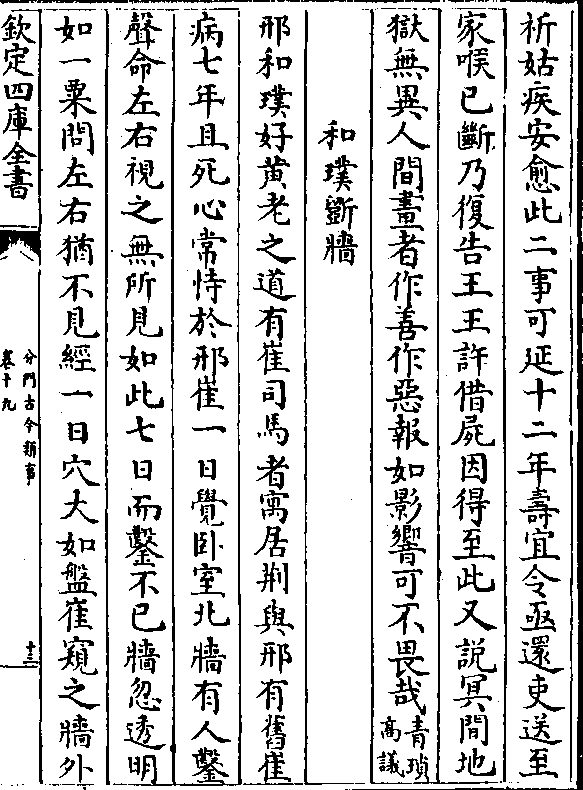 祈姑疾安愈此二事可延十二年壽宜令亟還吏送至
家喉已斷乃復告王王許借屍因得至此又說冥間地
獄無異人間畫者作善作惡報如影響可不畏哉青瑣
高議
和璞斵牆
邢和璞好黄老之道有崔司馬者寓居荆與邢有舊崔
病七年且死心常恃於邢崔一日覺卧室北牆有人鑿
聲命左右視之無所見如此七日而鑿不已牆忽透明
如一粟問左右猶不見經一日穴大如盤崔窺之牆外
欽定四庫全書
分門古今類事
卷十九
十三